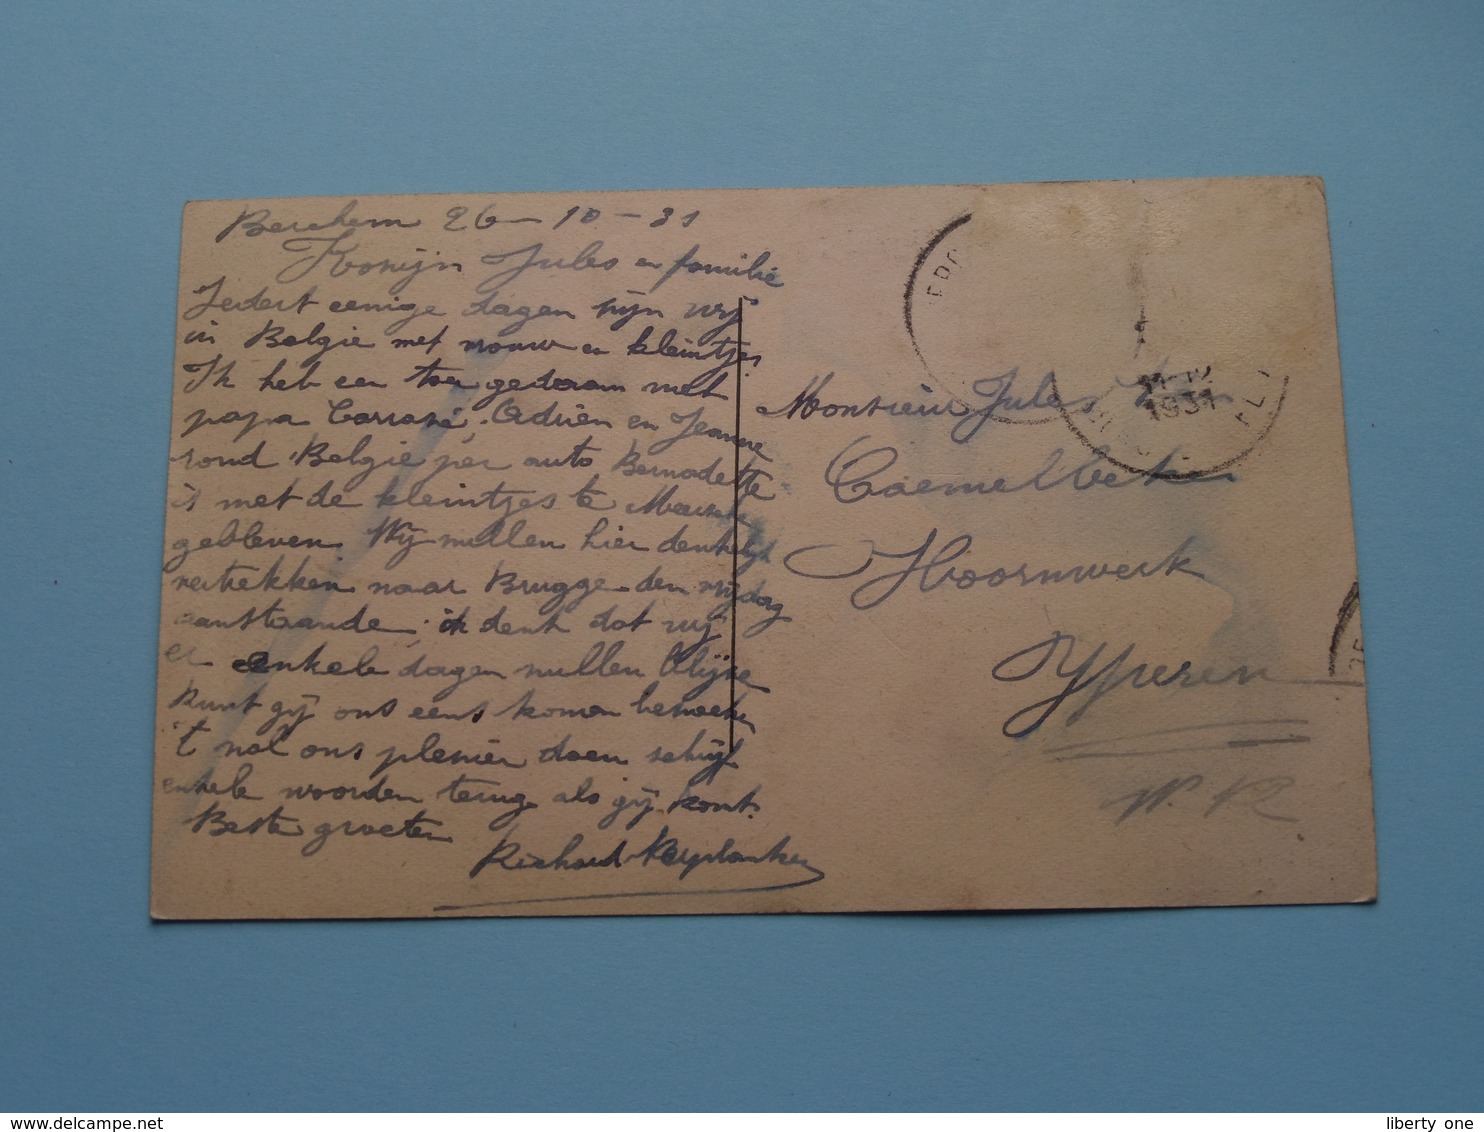 Berchem 26-10-31
Kozijn Jules en familie
Sedert eenige dagen zijn wij
in Belgie met vrouw en kleintjes
Ik heb een toer gedaan met
papa Carrané, Adrien en Jeanne
rond Belgie per auto Bernadette
is met de kleintjes te
gebleven. Wij zullen hier denkelijk
vertrekken naar Brugge den vrijdag
aanstaande, ik denk dat wij
er enkele dagen zullen blijven
kunt gij ons eens komen bezoeken
't zal ons plezier doen schrijf
enkele woorden terug als gij komt.
Beste groeten
Richard
Monsieur Jules
Caemelbeke
Hoornwerk
Yperen
W. Vl.
1931
liberty one
delcampe.net